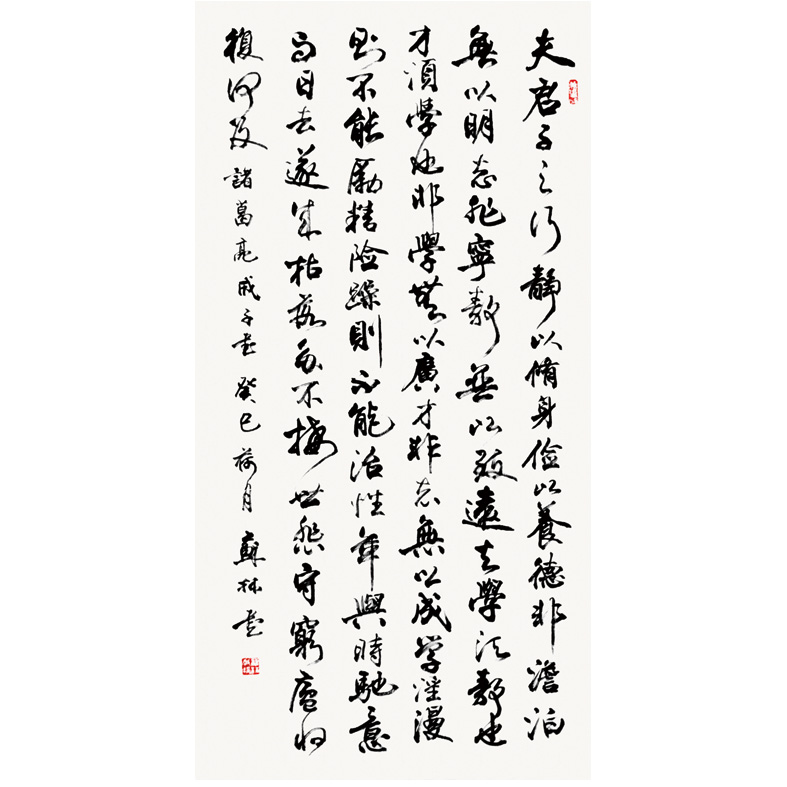 夫君子之行靜以脩身俭以養德非澹泊
無以明志非寧靜無以致遠夫學須靜也
才須學也非學無以廣才非志無以成學淫漫
則不能勵精险躁則不能治性年與時馳意
與日去遂成枯落多不接世悲守窮廬將
復何及 諸葛亮戒子書 癸巳荷月 蘇林書